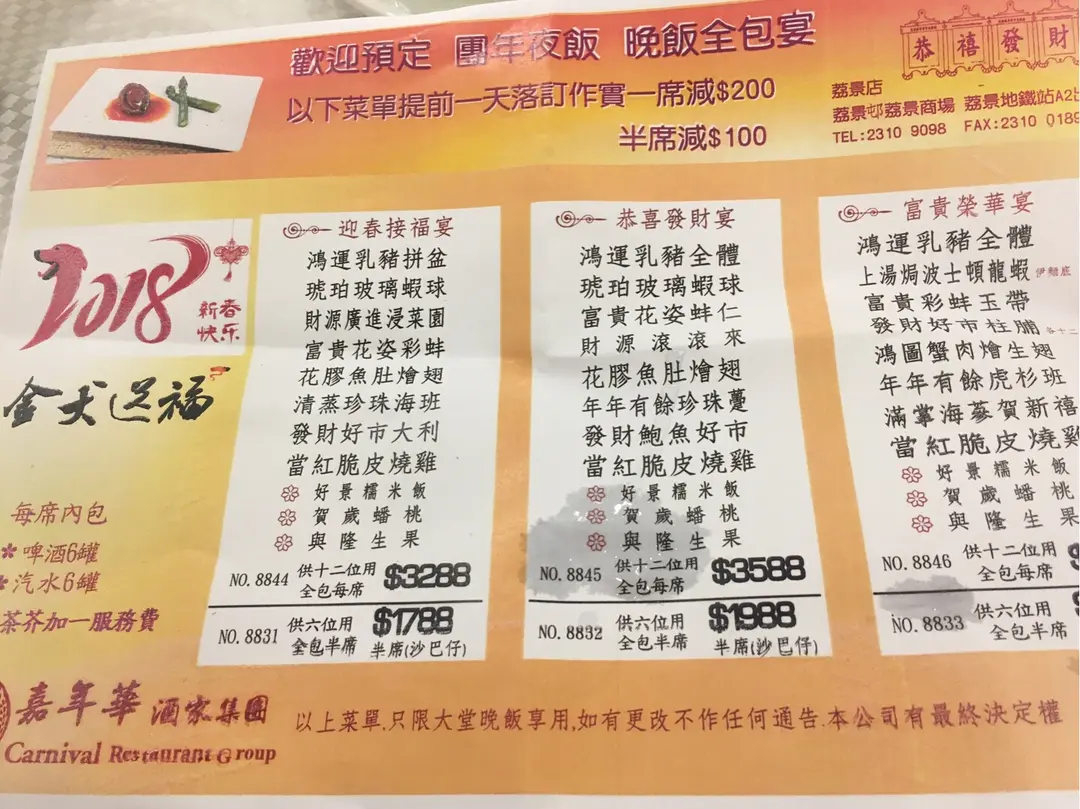 歡迎預定 團年夜飯 晚飯全包宴
以下菜單提前一天落訂作實一席減$200
半席減$100
恭禧發財
荔景店
荔景邨荔景商場 荔景地鐵站A2出
TEL:2310 9098 FAX:2310 0189
2018
新春
快乐
金犬送福
每席內包
啤酒6罐
汽水6罐
茶芥加一服務費
迎春接福宴
鴻運乳豬拼盆
琥珀玻璃蝦球
財源廣進浸菜園
富貴花姿彩蚌
花膠魚肚燴翅
清蒸珍珠海班
發財好市大利
當紅脆皮燒雞
好景糯米飯
賀歲蟠桃
與隆生果
NO. 8844 供十二位用 全包每席 $3288
NO. 8831 供六位用 全包半席 $1788 半席(沙巴仔)
恭喜發財宴
鴻運乳豬全體
琥珀玻璃蝦球
富貴花姿蚌仁
財源滾滾來
花膠魚肚燴翅
年年有餘珍珠躉
發財鮑魚好市
當紅脆皮燒雞
好景糯米飯
賀歲蟠桃
與隆生果
NO. 8845 供十二位用 全包每席 $3588
NO. 8832 供六位用 全包半席 $1988 半席(沙巴仔)
富貴榮華宴
鴻運乳豬全體
上湯焗波士頓龍蝦 伊麵底
富貴彩蚌玉帶
發財好市柱脯 各十二
鴻圖蟹肉燴生翅
年年有餘虎杉班
滿掌海蔘賀新禧
當紅脆皮燒雞
好景糯米飯
賀歲蟠桃
與隆生果
NO. 8846 供十二位用 全包每席 $
NO. 8833 供六位用 全包半席
嘉年華 酒家集團
Carnival Restaurant Group
以上菜單,只限大堂晚飯享用,如有更改不作任何通告.本公司有最終決定權